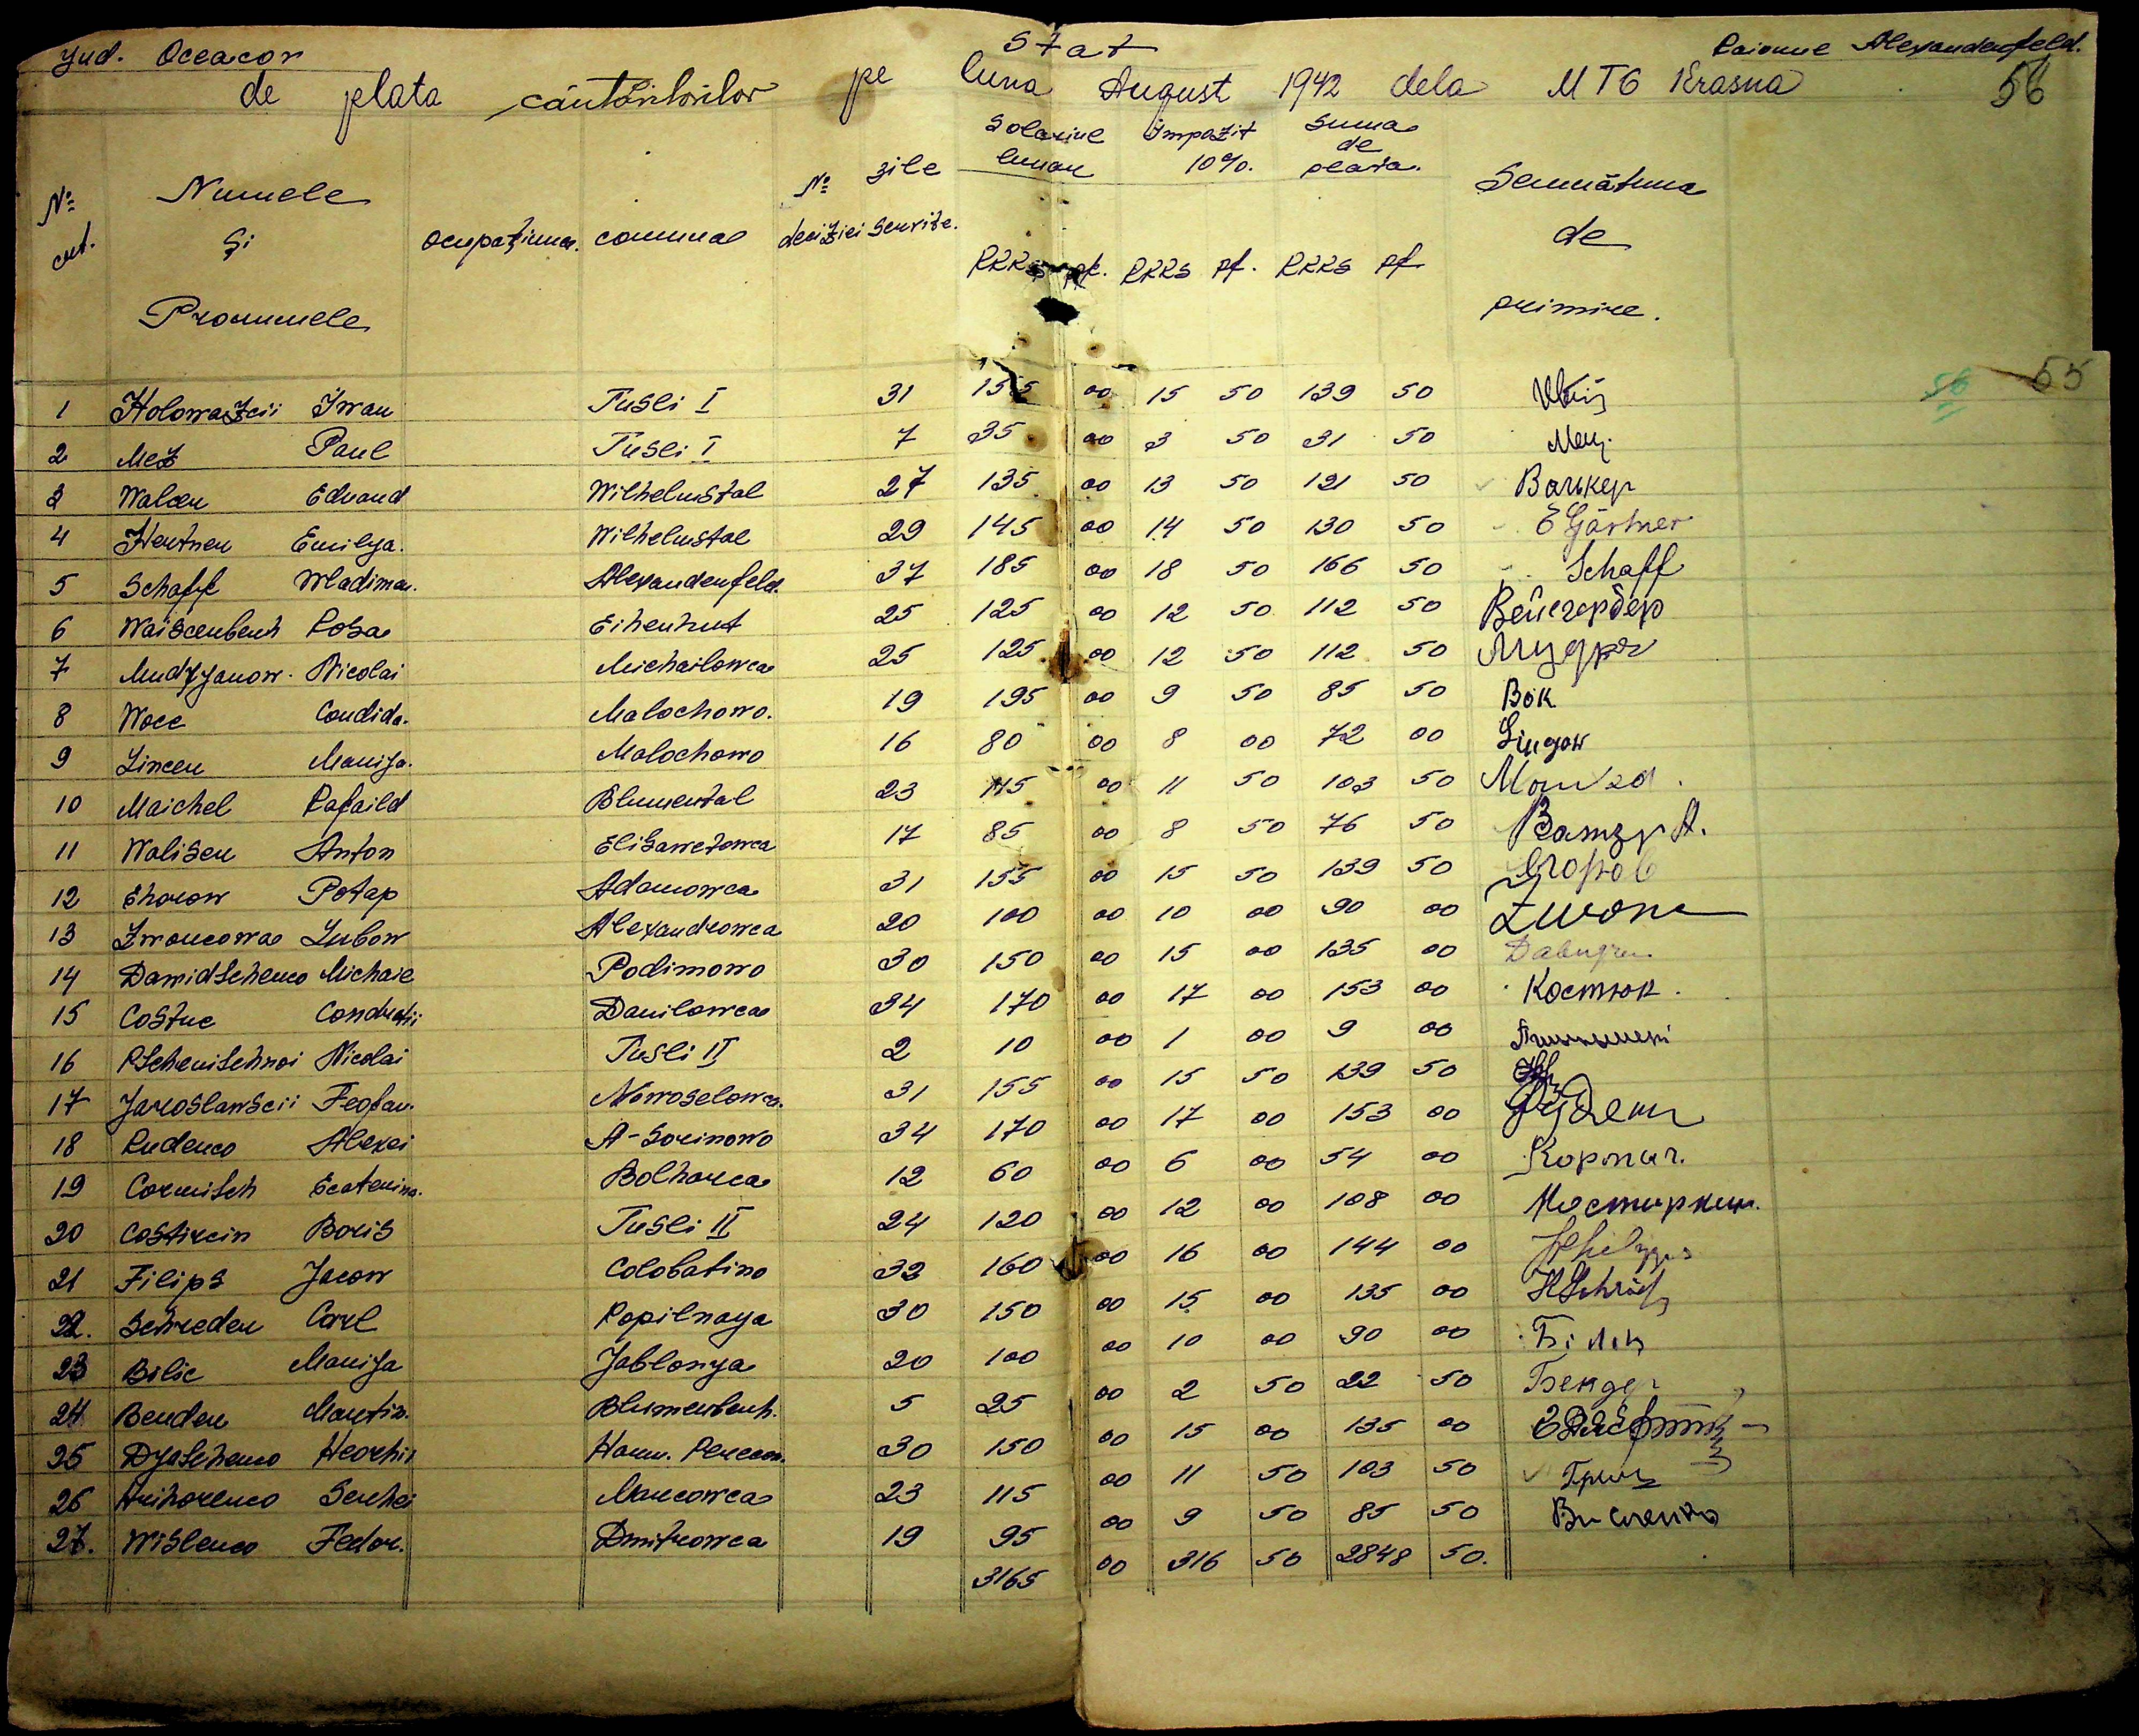 Jud. Oceacov Stat Raionul Alexandenfeld.
de plata cântăritorilor pe luna August 1942 dela MTC Krasna 56
№ crt. Numele și Pronumele ocupațiunea. comuna № deciziei zile servite. Solariul lunar Impozit 10%. Suma de plata. Semnătura de primire.
RKKS pf. RKKS pf. RKKS pf
56 55
1 Holowazcii Iwan Tusli I 31 155 00 15 50 139 50
2 Mez Paul Tusli I 7 35 00 3 50 31 50 Мец
3 Walcer Eduard Wilhelmstal 27 135 00 13 50 121 50 Валькер
4 Hertner Emilya. Wilhelmstal 29 145 00 14 50 130 50 E Gärtner
5 Schaff Wladimar. Alexandenfeld. 37 185 00 18 50 166 50 Schaff
6 Waiscenberh Rosa Eihenhut 25 125 00 12 50 112 50 Вейсгербер
7 Mudryanow. Nicolai Michailowca 25 125 00 12 50 112 50 Мудря
8 Wocc Condida. Malochowo. 19 195 00 9 50 85 50 Вок
9 Lincer Mariya. Malochowo 16 80 00 8 00 72 00
10 Maichel Rafaild Blumental 23 115 00 11 50 103 50
11 Waliser Anton Elisawetowca 17 85 00 8 50 76 50
12 Ehorow Potap Adamowca 31 155 00 15 50 139 50 Егоров
13 Zwoncowa Lubow Alexandrowca 20 100 00 10 00 90 00 Zwon
14 Dawidschenco Michaie Podimowo 30 150 00 15 00 135 00
15 Costuc Condratii Danilowca 34 170 00 17 00 153 00 Костюк.
16 Pschenischnoi Nicolai Tusli II 2 10 00 1 00 9 00
17 Jaroslawscii Feofan. Nowoselowca. 31 155 00 15 50 139 50
18 Rudenco Alexei A-Sorinowo 34 170 00 17 00 153 00 Руденк
19 Cormisch Ecaterina. Bolharca 12 60 00 6 00 54 00 Кормич.
20 Costircin Boris Tusli II 24 120 00 12 00 108 00 Костиркин.
21 Filips Jacow Colobatino 32 160 00 16 00 144 00
22. Schreder Carl Popilnaya 30 150 00 15 00 135 00 K Schröd
23 Bilic Mariya Jablonya 20 100 00 10 00 90 00 Білік
24 Bender Martin. Blumenberh. 5 25 00 2 50 22 50 Бендер
25 Dyaschenco Heorhii 30 150 00 15 00 135 00
26 Hrihorenco Serhei Marcowca 23 115 00 11 50 103 50 Гриц
27. Wislenco Fedor. Dmitrowca 19 95 00 9 50 85 50 Висленко
3165 00 316 50 2848 50.